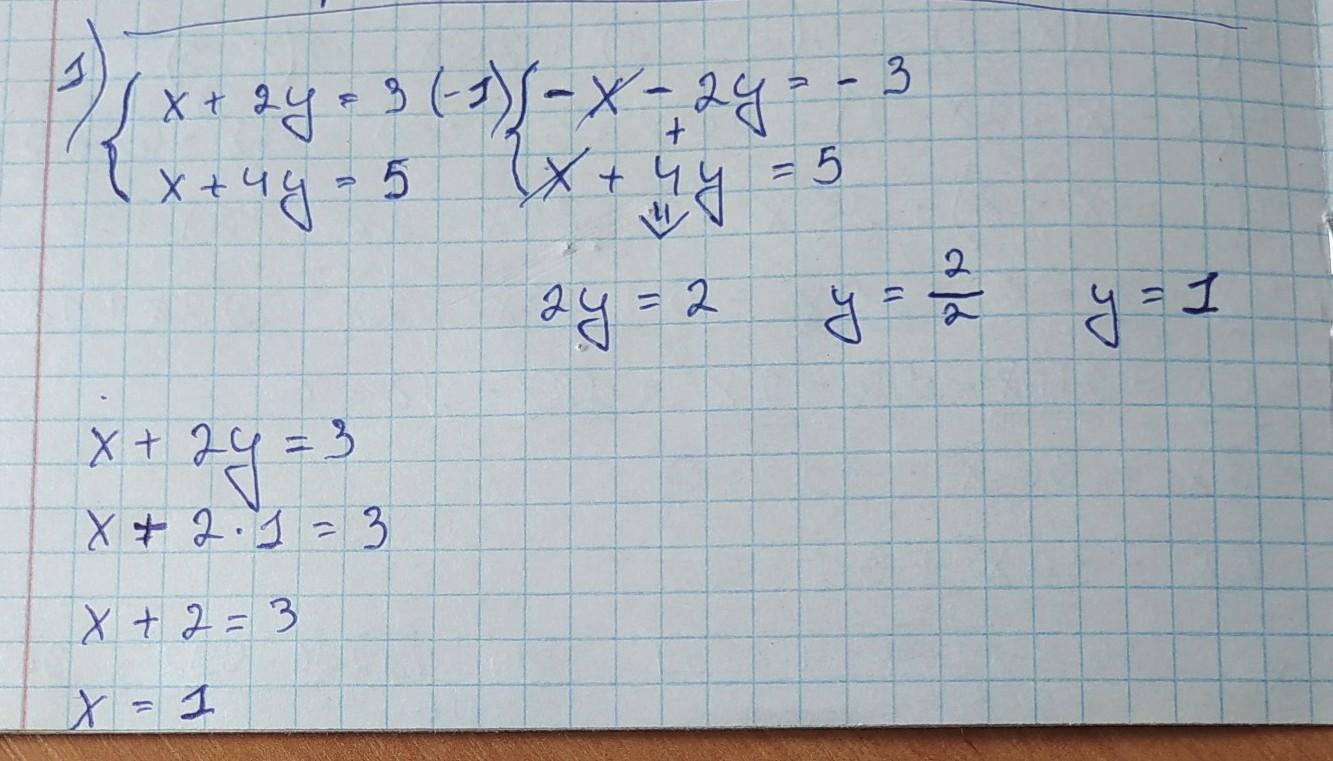 1) { x + 2y = 3 (-1) { - x - 2y = - 3
+
x + 4y = 5 x + 4y = 5
2y = 2 y = 2/2 y = 1
x + 2y = 3
x + 2 · 1 = 3
x + 2 = 3
x = 1